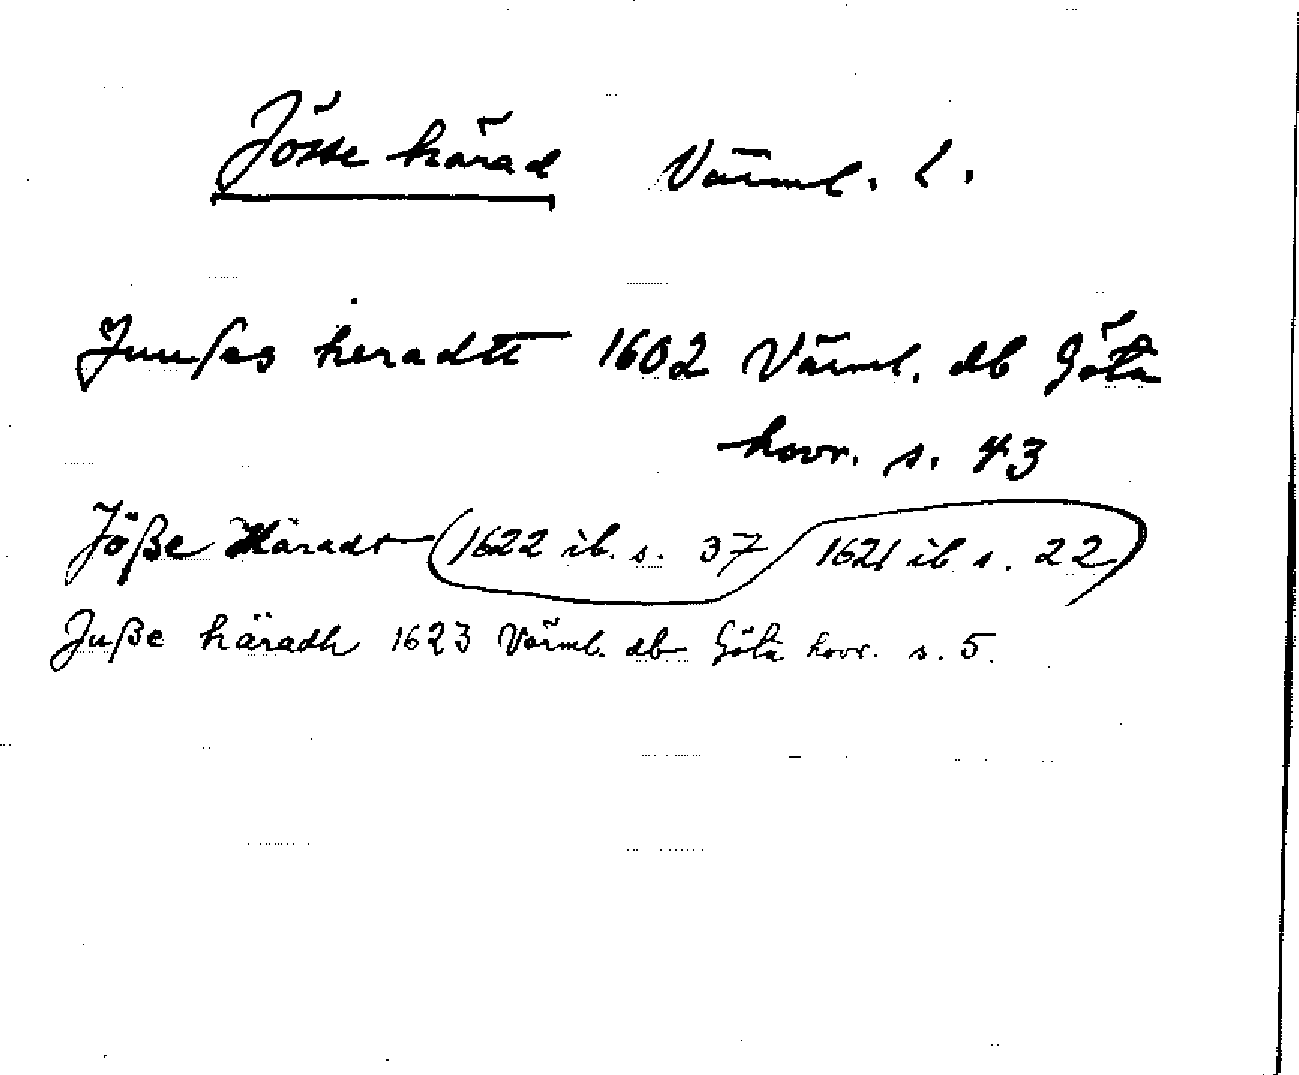 Jösse härad Värml. l.
Junſes heradtt 1602 Värml. db Göta
hovr. s. 43
Jöße Häradt (1622 ib. s. 37 1621 ib s. 22)
Juße häradh 1623 Värml. db Göta hovr. s. 5.